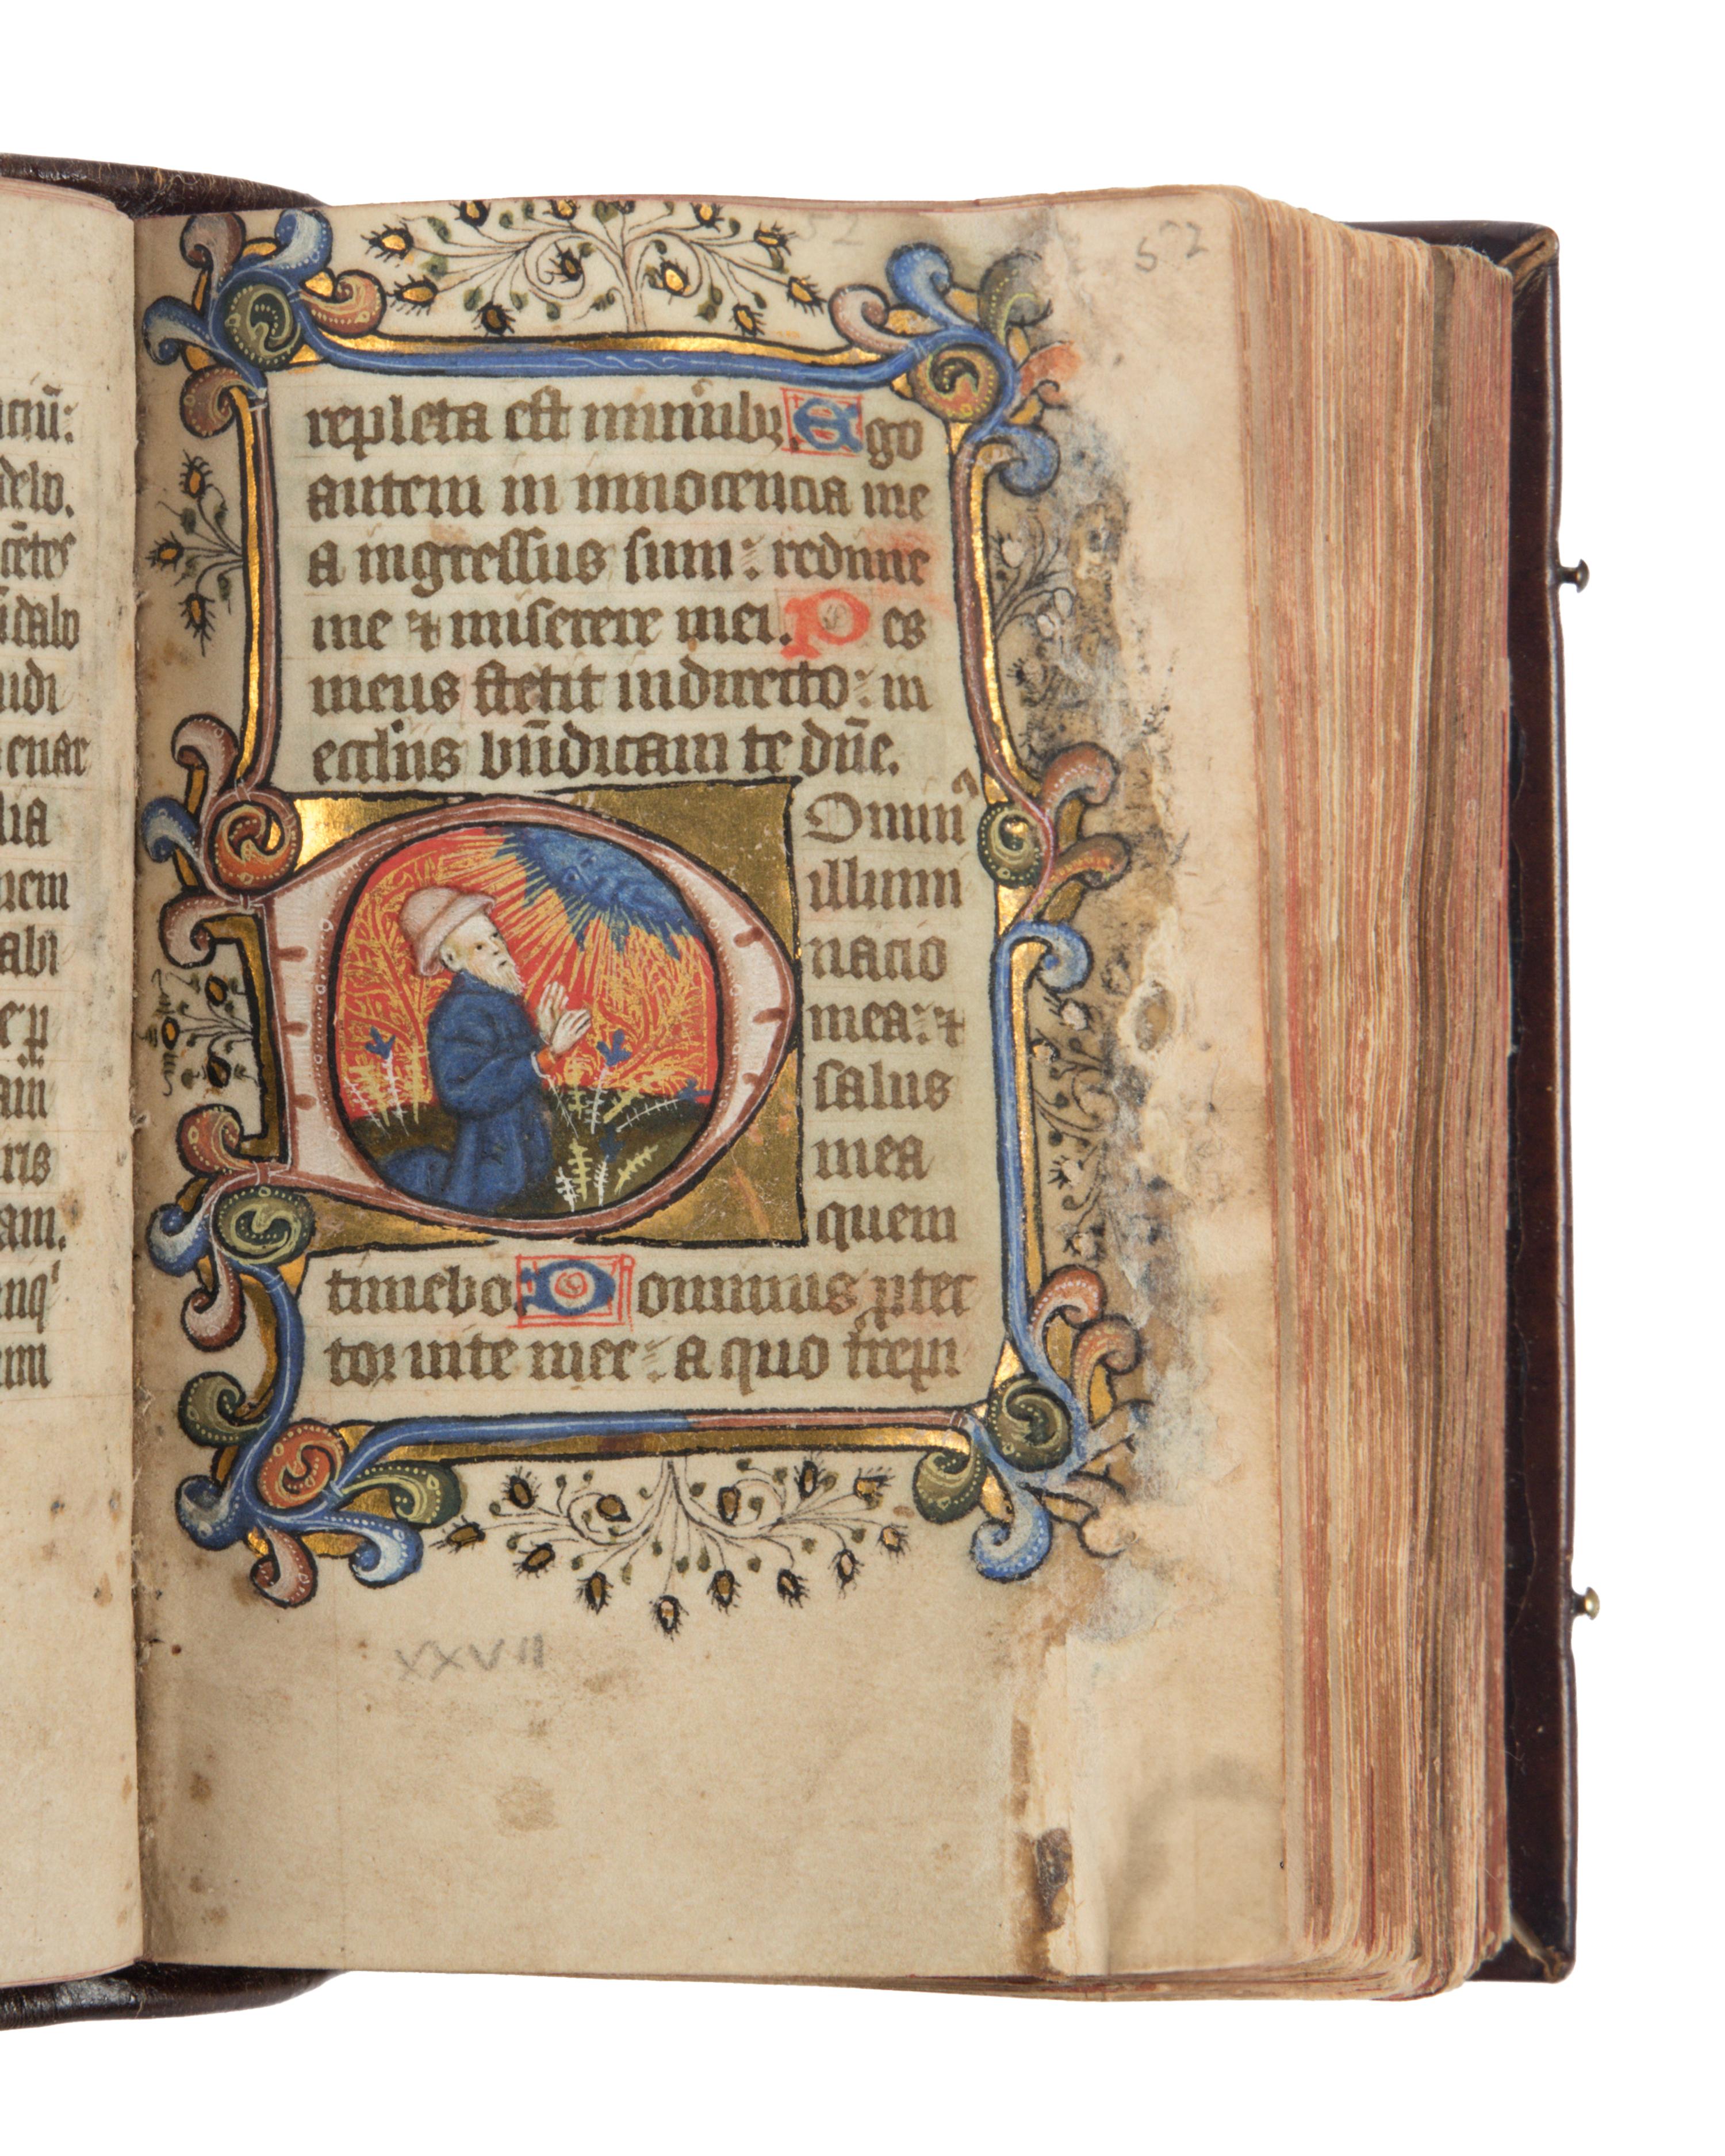 delo.
cẽtes
udi
enar
lia
nem
abi
ris
am.
52
52
repleta est mun̾ibꝫ Ego
autem in innocencia me
a ingressus sum: redime
me ⁊ miserere mei. Pes
meus stetit indirecto: in
eccl̃iis bñdicam te dñe.
DOminꝰ
illumi
nacio
mea: ⁊
salus
mea
quem
timebo. Dominus ꝓtec
tor uite mee: a quo trepi
XXVII